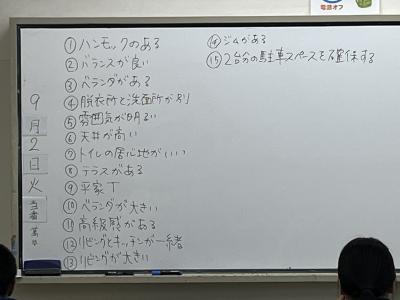 ①ハンモックのある
②バランスが良い
③ベランダがある
④脱衣所と洗面所が別
⑤雰囲気が明るい
⑥天井が高い
⑦トイレの居心地がいい
⑧テラスがある
⑨平家丁
⑩ベランダが大きい
⑪高級感がある
⑫リビングとキッチンが一緒
⑬リビングが大きい
⑭ジムがある
⑮2台分の駐車スペースを確保する
9月2日火
電源オフ